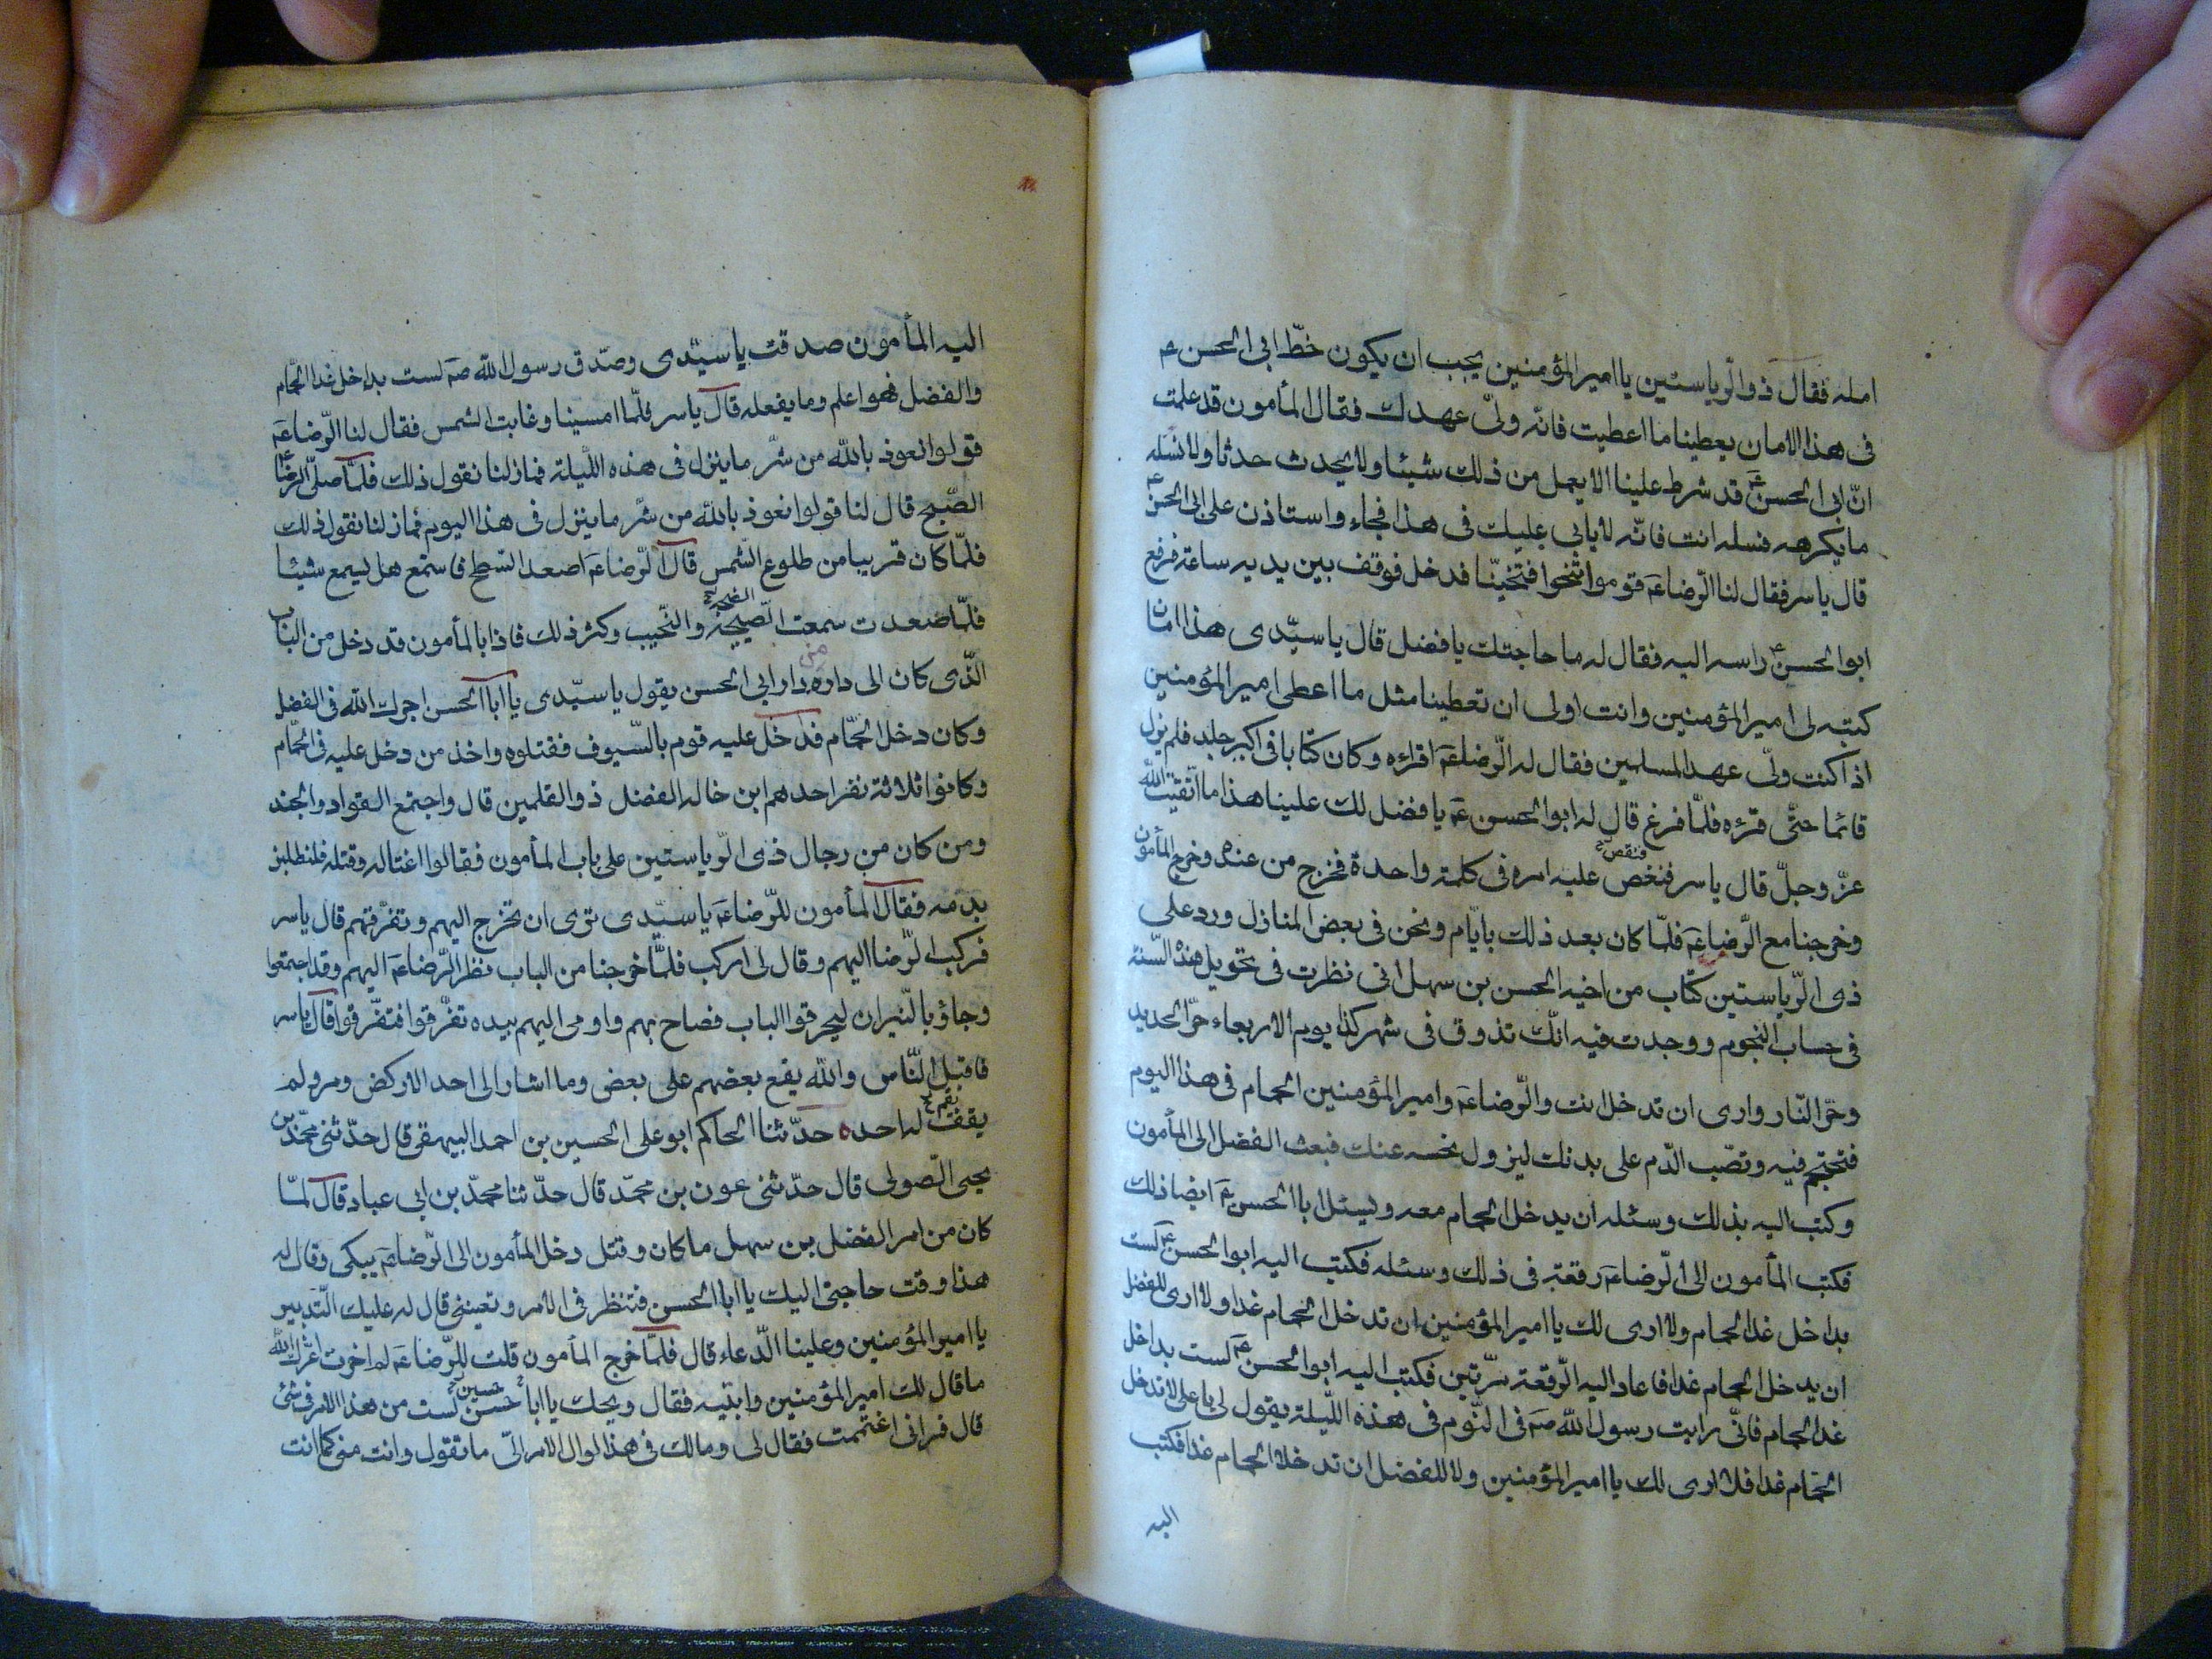 امله فقال ذو الرّياستين يا امير المؤمنين يجب ان يكون خطّ ابى الحسن ع
فى هذا الامان يعطينا ما اعطيت فانّه ولىّ عهدك فقال المأمون قد علمت
انّ ابى الحسن ع قد شرط علينا الا يعمل من ذلك شيئا ولا يحدث حدثا ولا نسله
ما يكرهه فسله انت فانّه لا يابى عليك فى هذا فجاء واستاذن على ابى الحسن ع
قال ياسر فقال لنا الرّضا عم قوموا تنحوا فتنحيّنا فدخل فوقف بين يديه ساعة فرفع
ابو الحسن ع راسه اليه فقال له ما حاجتك يا فضل قال يا سيّدى هذا امان
كتبه لى امير المؤمنين وانت اولى ان تعطينا مثل ما اعطى امير المؤمنين
اذ اكنت ولىّ عهد المسلمين فقال له الرّضا عم اقراءه وكان كتابا فى اكبر جلد فلم يزل
قائما حتّى قرءه فلمّا فرغ قال له ابو الحسن عم يا فضل لك علينا هذا ما اتّقيت اللّه
عزّ وجلّ قال ياسر فنغص عليه امره فى كلمة واحدة فخرج من عنده وخرج المأمون
فنقص خ
وخرجنا مع الرّضا عم فلمّا كان بعد ذلك بايّام ونحن فى بعض المنازل ورد على
ذى الرّياستين كتاب من اخيه الحسن بن سهل انى نظرت فى تحويل هذه السّنة
فى حساب النجوم ووجدت فيه انّك تذوق فى شهر كذا يوم الاربعاء حرّ الحديد
وحرّ النّار وارى ان تدخل انت والرّضا عم وامير المؤمنين الحمام فى هذا اليوم
فتحتجم فيه وتصّب الدّم على بدنك ليزول نحسه عنك فبعث الفضل الى المأمون
وكتب اليه بذلك وسئله ان يدخل الحمام معه ويسئل ابا الحسن عم ايضا ذلك
فكتب المأمون الى الرّضا عم رقعة فى ذلك وسئله فكتب اليه ابو الحسن ع لست
بداخل غدا الحمام ولا ارى لك يا امير المؤمنين ان تدخل الحمام غدا ولا ارى للفضل
ان يدخل الحمام غدا فاعاد اليه الرّقعة مرّتين فكتب اليه ابو الحسن عم لست بداخل
غدا الحمام فانّى رايت رسول اللّه صم فى النّوم فى هذه اللّيلة يقول لى يا على لا تدخل
الحمّام غدا فلا ارى لك يا امير المؤمنين ولا للفضل ان تدخلا الحمام غدا فكتب
اليه
اليه المأمون صدقت يا سيّدى وصدّق رسول اللّه صم لست بداخل غدا الحمّام
والفضل فهو اعلم وما يفعله قال ياسر فلمّا امسينا وغابت الشمس فقال لنا الرّضا عم
قولوا نعوذ باللّه من شرّ ما ينزل فى هذه اللّيلة فما زلنا نقول ذلك فلمّا صلّى الرضا ع
الصّبح قال لنا قولوا نعوذ باللّه من شرّ ما ينزل فى هذا اليوم فما زلنا نقول ذلك
فلمّا كان قريبا من طلوع الشّمس قال الرّضا عم اصعد السّطح فاستمع هل تسمع شيئا
فلمّا صعدت سمعت الصّيحة والنّحيب وكثر ذلك فاذا بالمأمون قد دخل من الباب
الضّجة خ
الّذى كان الى داره من دار ابى الحسن يقول يا سيّدى يا ابا الحسن اجرك اللّه فى الفضل
وكان دخل الحمّام فدخل عليه قوم بالسّيوف فقتلوه واخذ من دخل عليه فى الحمّام
وكانوا ثلاثة نفر احدهم ابن خاله الفضل ذو القلمين قال واجتمع القواد والجند
ومن كان من رجال ذى الرّياستين على باب المأمون فقالوا اغتاله وقتله فلنطلبن
بدمه فقال المأمون للرّضا عم يا سيّدى ترى ان تخرج اليهم وتفرّقهم قال ياسر
فركب الرّضا اليهم وقال لى اركب فلمّا خرجنا من الباب نظر الرّضا عم اليهم وقد اجتمعوا
وجاؤ بالنّيران ليحرقوا الباب فصاح بهم واومى اليهم بيده تفرّقوا فتفرّقوا قال ياسر
فاقبل النّاس واللّه يقع بعضهم على بعض وما اشار الى احد الا ركض ومرّ ولم
يقف له احد حدّثنا الحاكم ابو على الحسين بن احمد البيهقى قال حدّثنى محمّد بن
يقم خ
يحيى الصّولى قال حدّثنى عون بن محمّد قال حدّثنا محمّد بن ابى عباد قال لمّا
كان من امر الفضل بن سهل ما كان وقتل دخل المأمون الى الرّضا عم يبكى وقال له
هذا وقت حاجتى اليك يا ابا الحسن فتنظر فى الامر وتعيننى قال له عليك التّدبير
يا امير المؤمنين وعلينا الدّعاء قال فلمّا خرج المأمون قلت للرّضا عم لم اخرت اعزّك اللّه
ما قال لك امير المؤمنين وابيته فقال ويحك يا ابا حسن لست من هذا الامر فى شئ
حسين خ
قال فرانى اغتممت فقال لى وما لك فى هذا لو ال الامر الىّ ما تقول وانت منى كما انت